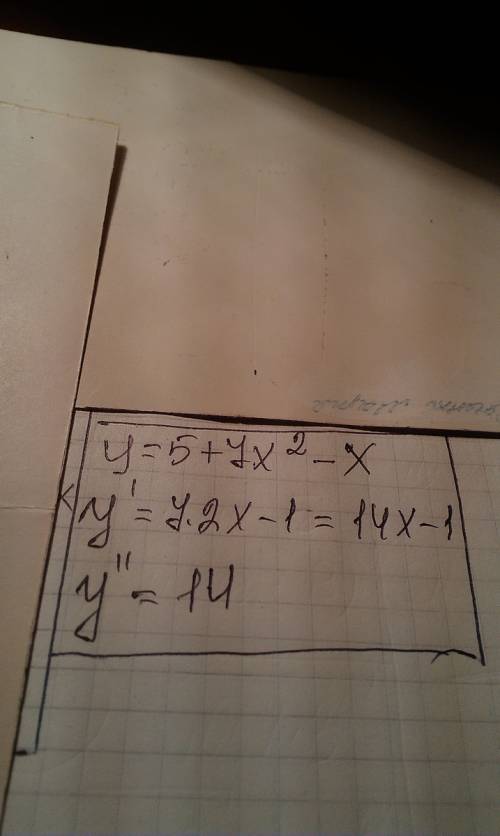 y = 5 + 7x² - x
y' = 7·2x - 1 = 14x - 1
y'' = 14